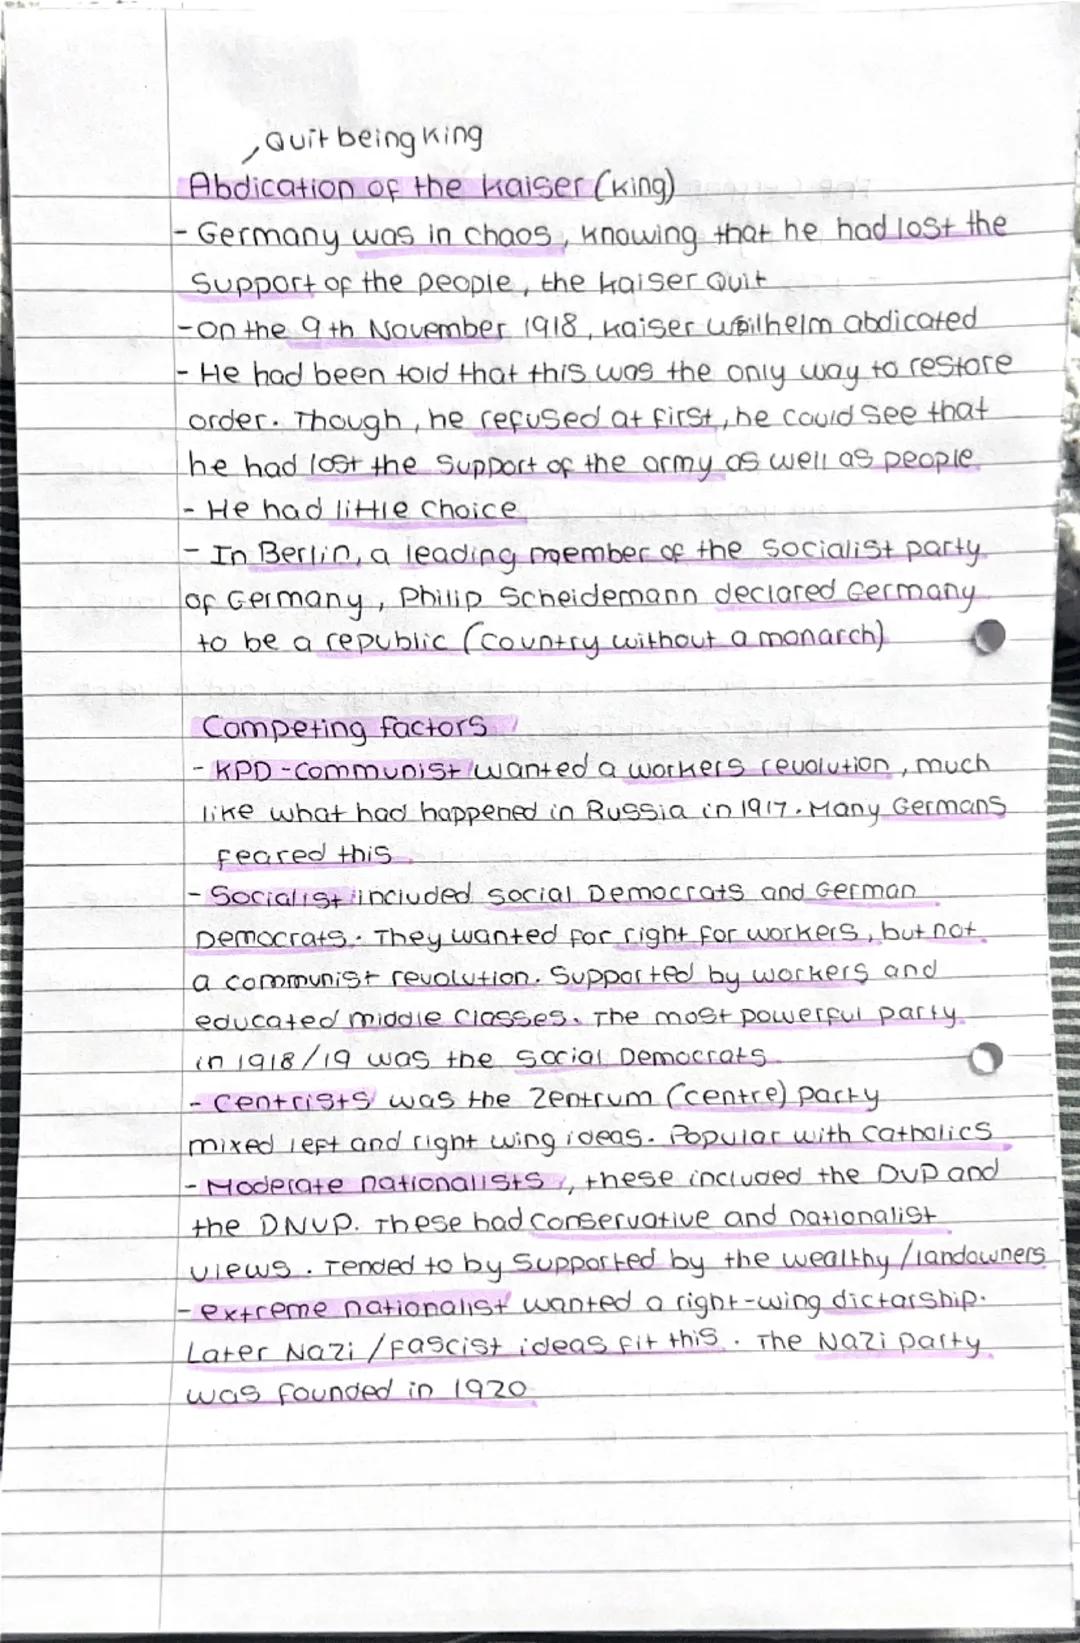 Quit being King
Abdication of the Kaiser (King)
- Germany was in chaos, knowing that he had lost the
support of the people, the kaiser Quit
- On the 9th November 1918, Kaiser Wilhelm abdicated
- He had been told that this was the only way to restore
order. Though, he refused at first, he could see that
he had lost the support of the army as well as people
- He had little choice
- In Berlin, a leading member of the Socialist party
of Germany, Philip Scheidemann declared Germany
to be a republic (country without a monarch)
Competing factors
- KPD - Communist wanted a workers revolution, much
like what had happened in Russia in 1917. Many Germans
feared this
- Socialist included Social Democrats and German
Democrats. They wanted for right for workers, but not
a communist revolution. Supported by workers and
educated middle classes. The most powerful party
in 1918/19 was the Social Democrats
- Centrists was the Zentrum (centre) Party
mixed left and right wing ideas. Popular with Catholics
- Moderate nationalists, these included the DVP and
the DNVP. These had conservative and nationalist
views. Tended to by supported by the wealthy / landowners
- extreme nationalist wanted a right-wing dictarship.
Later Nazi / Fascist ideas fit this. The Nazi party
was founded in 1920